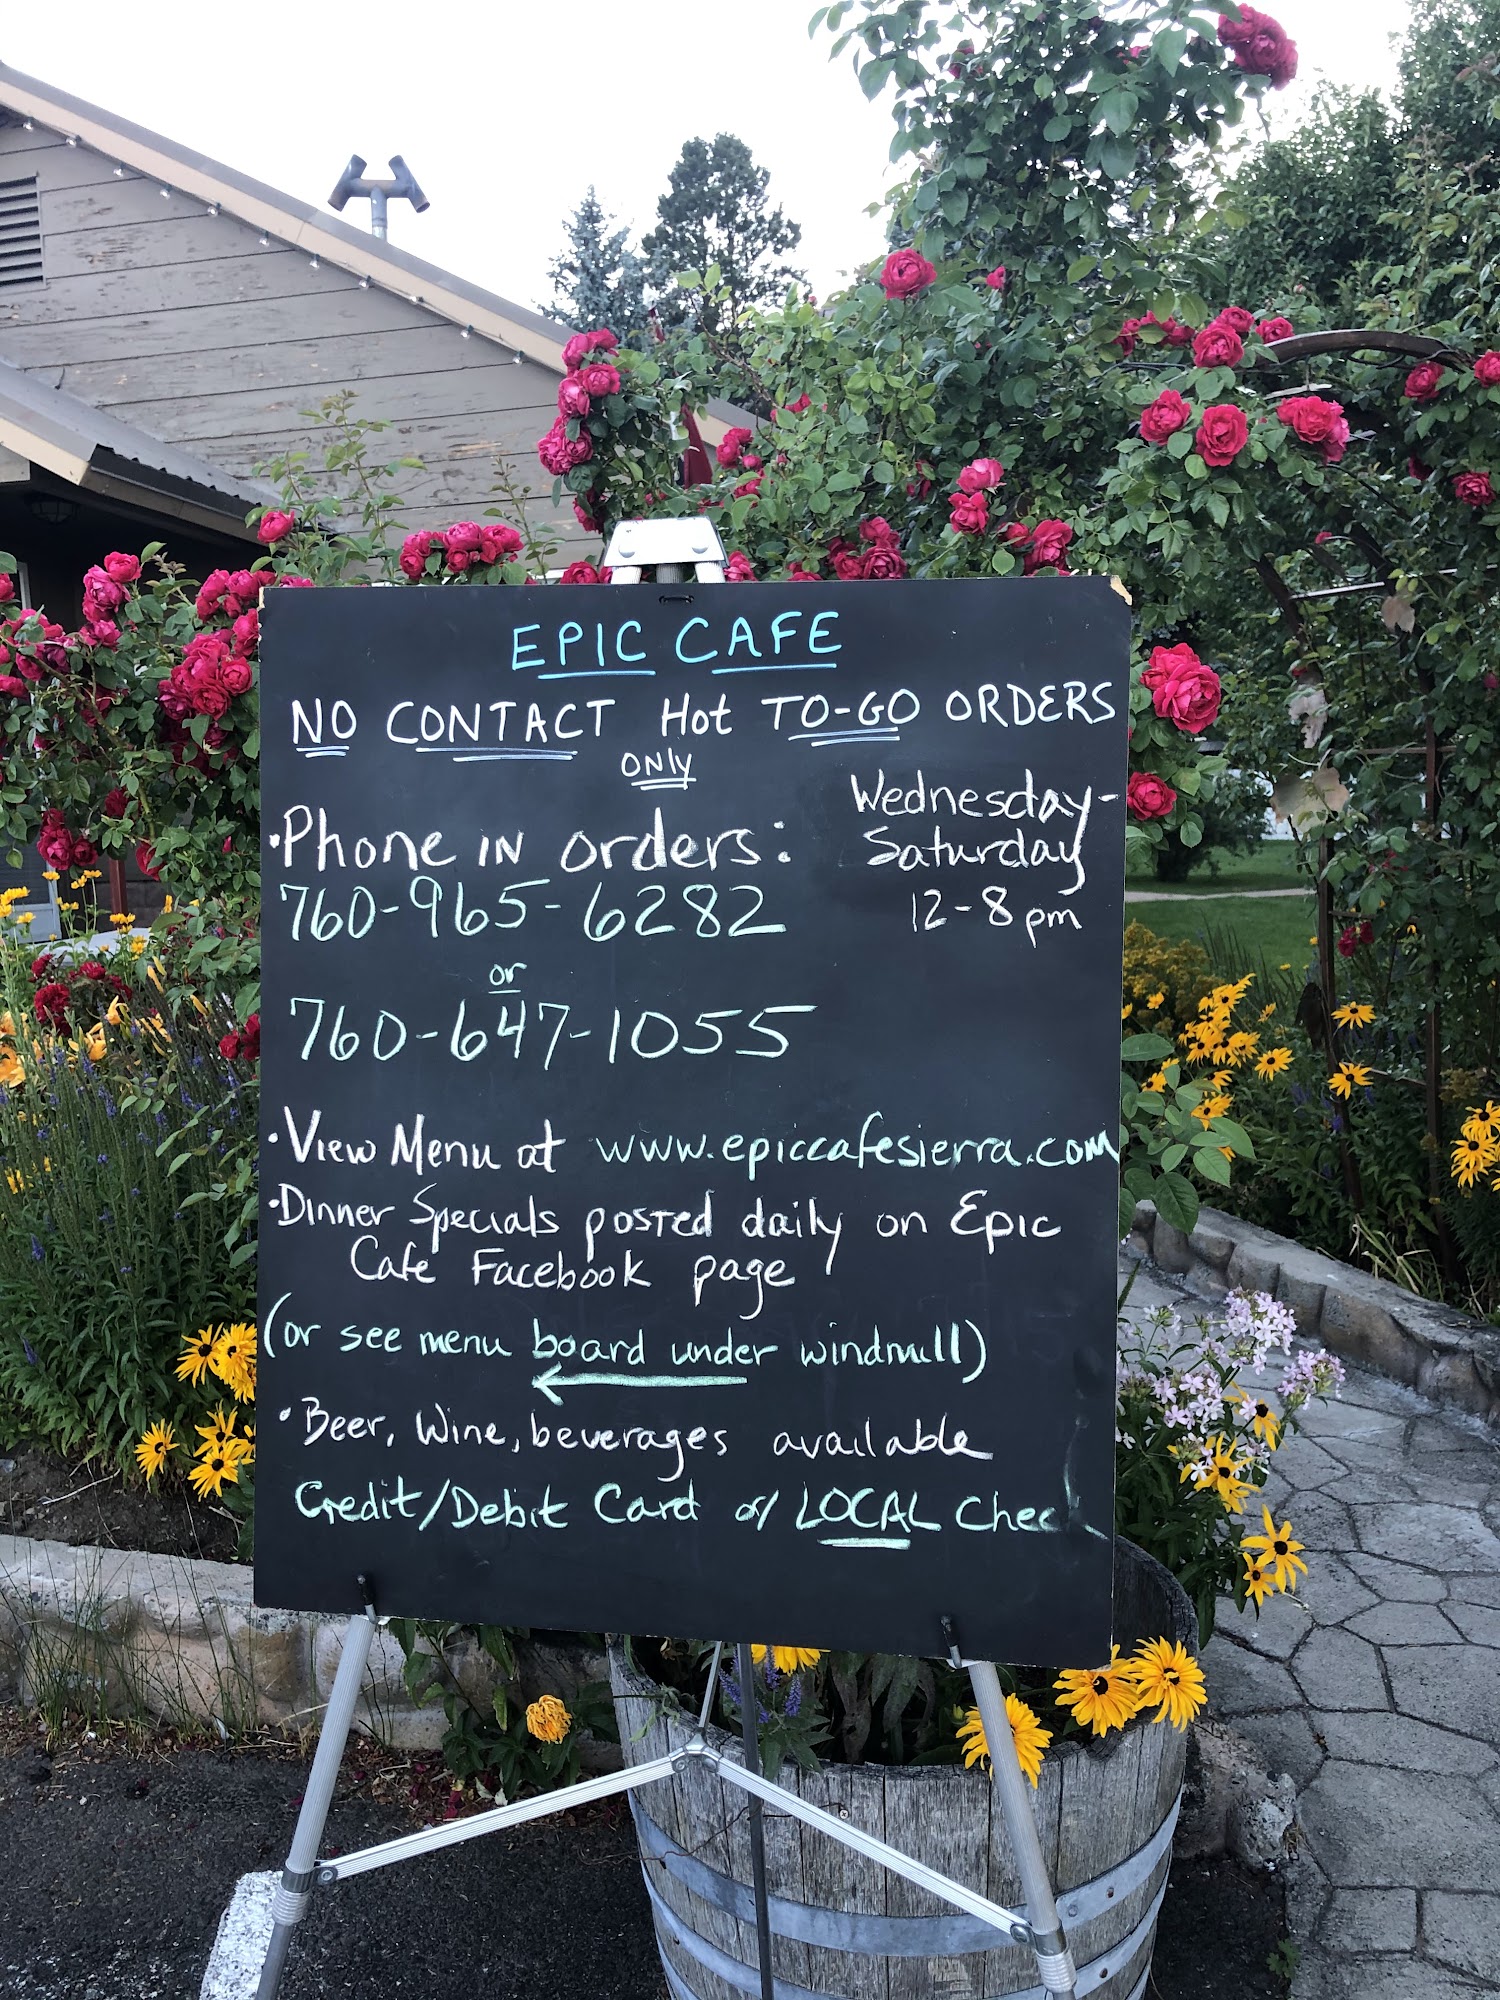 EPIC CAFE
NO CONTACT Hot TO-GO ORDERS
ONLY
•Phone IN orders:
760-965-6282
or
760-647-1055
Wednesday-
Saturday
12-8pm
•View Menu at www.epiccafesierra.com
•Dinner Specials posted daily on Epic
Cafe Facebook page
(or see menu board under windmill)
•Beer, Wine, beverages available
Credit/Debit Card or LOCAL Check